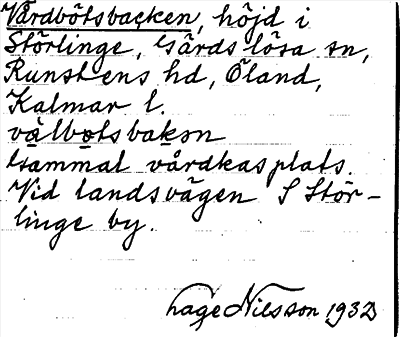 Vårdbötsbacken, höjd i
Störlinge, Gärdslösa sn,
Runstens hd, Öland,
Kalmar l.
välbotsbakən
Gammal vårdkasplats.
Vid landsvägen S Stör-
linge by.
Nilsson 1932